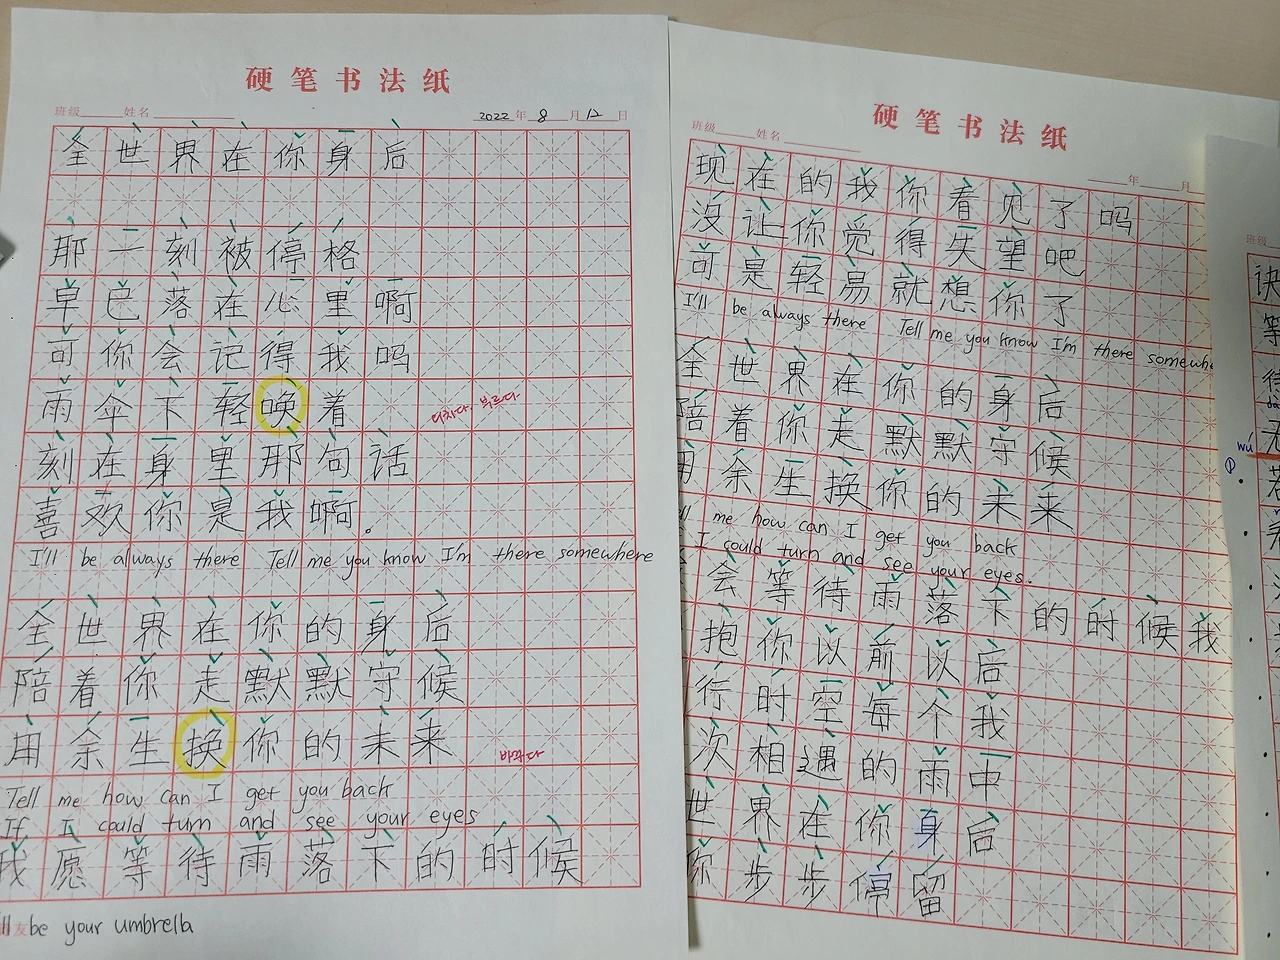 硬笔书法纸
班级 姓名 2022年8月12日
全世界在你身后
那一刻被停格
早已落在心里啊
可你会记得我吗
雨伞下轻唤着
刻在身里那句话
喜欢你是我啊。
I'll be always there Tell me you know I'm there somewhere
全世界在你的身后
陪着你走默默守候
用余生换你的未来
바꾸다
Tell me how can I get you back
If I could turn and see your eyes
我愿等待雨落下的时候
be your umbrella
硬笔书法纸
班级 姓名 年 月
现在的我你看见了吗
没让你觉得失望吧
可是轻易就想你了
I'll be always there Tell me you know I'm there somewhe
全世界在你的身后
陪着你走默默守候
用余生换你的未来
me how can I get you back
I could turn and see your eyes.
会等待雨落下的时候我
抱你以前以后
行时空每个我
次相遇的雨中
世界在你身后
你步步停留
班级
诀
等
待
无
wú
①
若